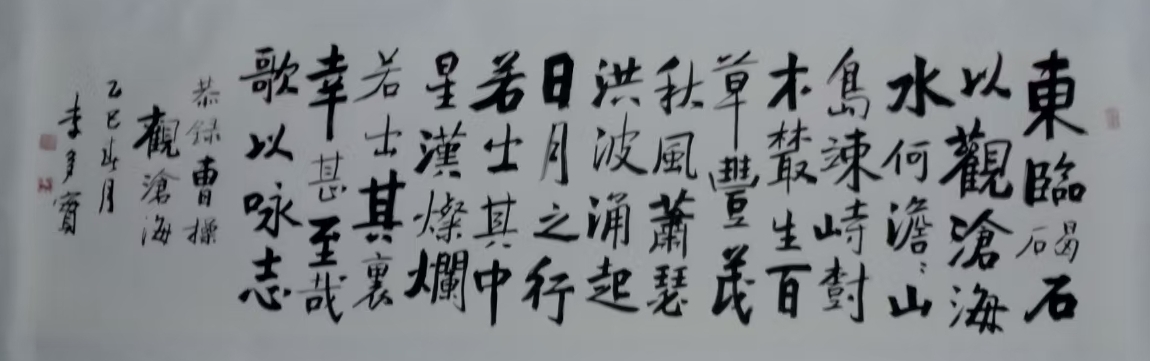 東臨碣石
以觀滄海
水何澹〻山
島竦峙樹
木叢生百
草豐茂
秋風蕭瑟
洪波涌起
日月之行
若出其中
星漢燦爛
若出其裏
幸甚至哉
歌以咏志
恭録曹操
觀滄海
乙巳月
李多寶